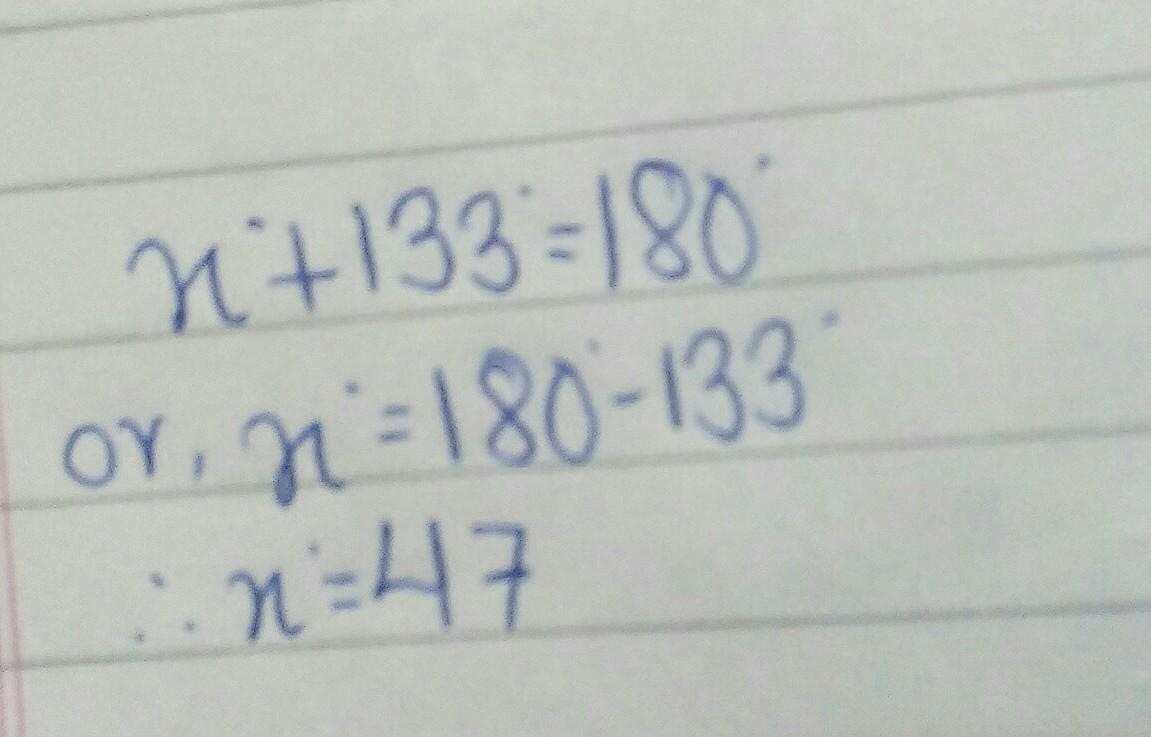 x°+133°=180°
or, x°=180°-133°
∴ x°=47